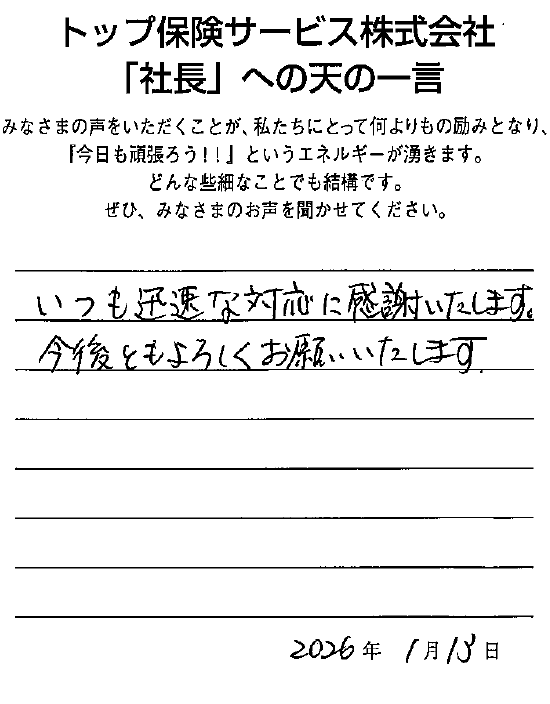 トップ保険サービス株式会社
「社長」への天の一言
みなさまの声をいただくことが、私たちにとって何よりもの励みとなり、
『今日も頑張ろう！！』というエネルギーが湧きます。
どんな些細なことでも結構です。
ぜひ、みなさまのお声を聞かせてください。
いつも迅速な対応に感謝いたします。
今後ともよろしくお願いいたします.
2026年 1月13日